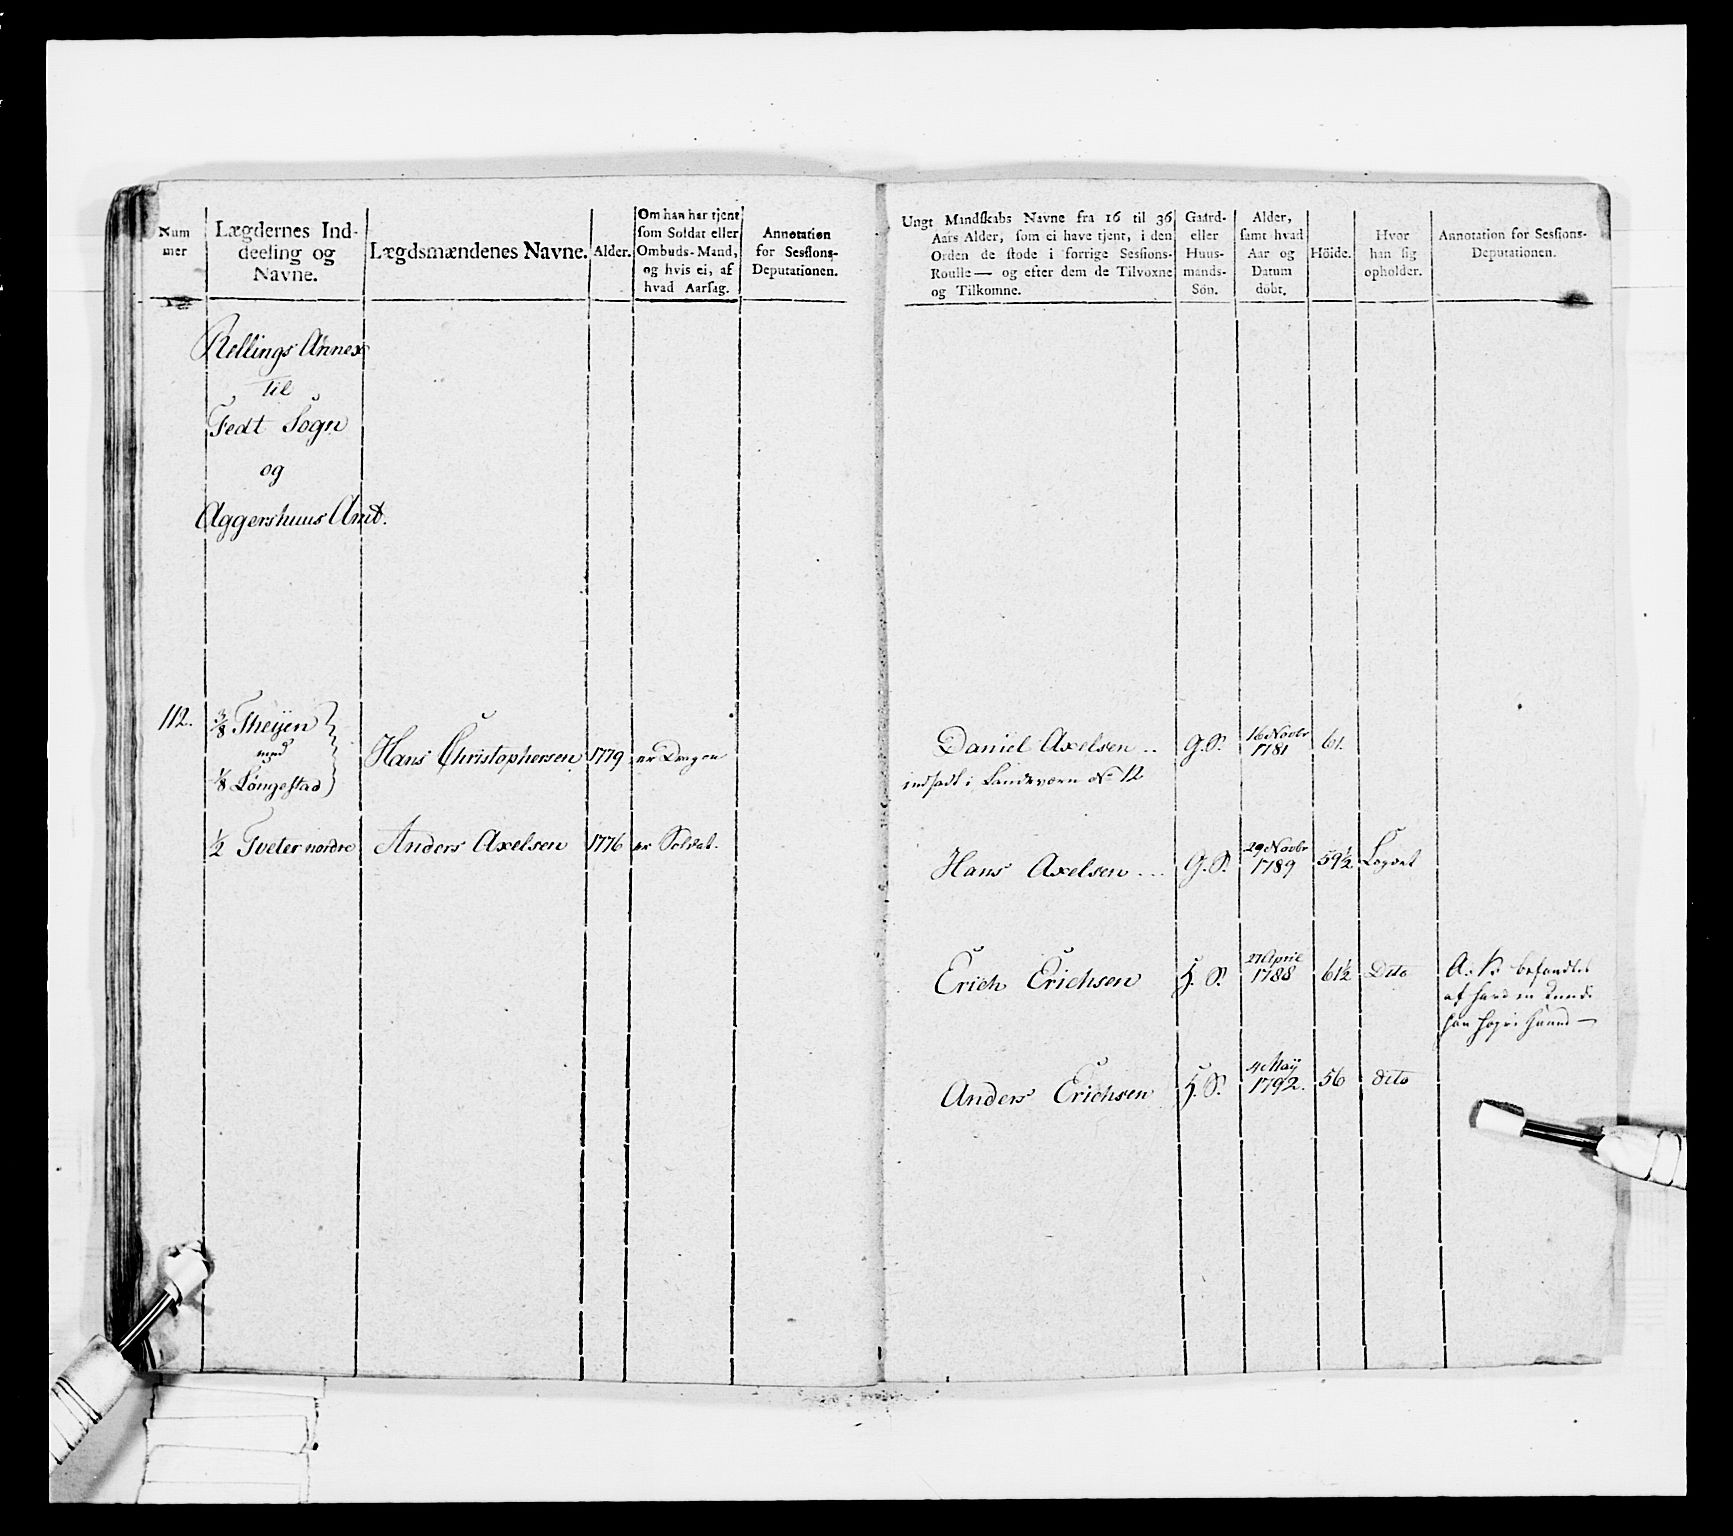 Num
mer
Lægdernes Ind-
deeling og
Navne.
Lægdsmændenes Navne.
Alder.
Om han har tjent
som Soldat eller
Ombuds-Mand,
og hvis ei, af
hvad Aarsag.
Annotation
for Sessions-
Deputationen.
Rellings Annex
til
Fedt Sogn
og
Aggershuus Amt.
112.
3/8 Theÿen
med
1/8 Løngestad
Hans Christophersen 1779 er Dragon
1/2 Tveter nordre Anders Axelsen 1776 er Soldat.
Ungt Mandskabs Navne fra 16 til 36
Aars Alder, som ei have tjent, i den
Orden de stode i forrige Sessions-
Roulle — og efter dem de Tilvoxne
og Tilkomne.
Gaard-
eller
Huus-
mands-
Sön.
Alder,
samt hvad
Aar og
Datum
döbt.
Höide.
Hvor
han sig
opholder.
Annotation for Sessions-
Deputationen.
Daniel Axelsen .. G.S. 16 Novbr 1781 61.
indsadt i Landeværn No 12
Hans Axelsen ... G.S. 29 Novbr 1789 59½ Logvet
Erich Erichsen H.S. 27 April 1788 61½ Dito
A.S. befandtes
af
Anders Erichsen H.S. 4 Maÿ 1792. 56 dito